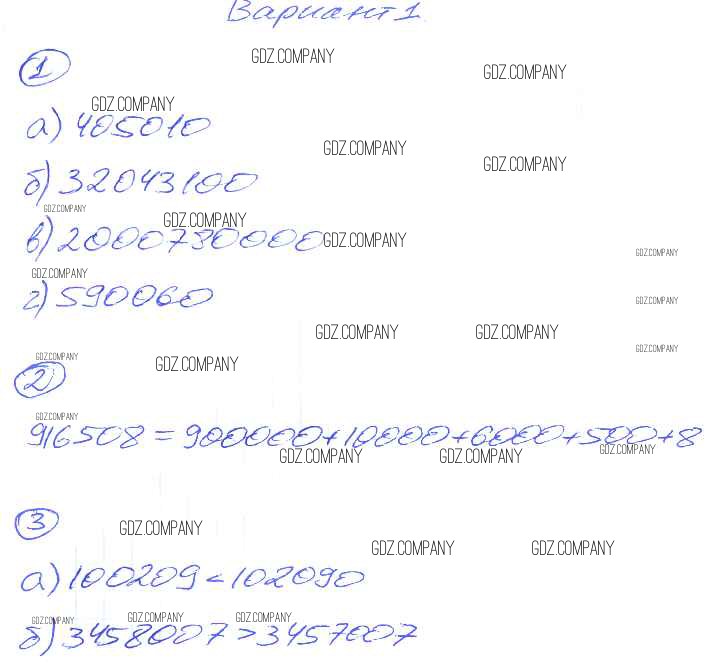 Вариант 1
GDZ.COMPANY
1
GDZ.COMPANY
GDZ.COMPANY
а) 405010
GDZ.COMPANY
GDZ.COMPANY
б) 32043100
GDZ.COMPANY
GDZ.COMPANY
в) 2000730000
GDZ.COMPANY
GDZ.COMPANY
GDZ.COMPANY
г) 590060
GDZ.COMPANY
GDZ.COMPANY
GDZ.COMPANY
GDZ.COMPANY
GDZ.COMPANY
GDZ.COMPANY
2
GDZ.COMPANY
916508 = 900000+10000+6000+500+8
GDZ.COMPANY
GDZ.COMPANY
GDZ.COMPANY
3
GDZ.COMPANY
GDZ.COMPANY
GDZ.COMPANY
а) 100209 < 102090
GDZ.COMPANY
GDZ.COMPANY
GDZ.COMPANY
б) 3458007 > 3457007